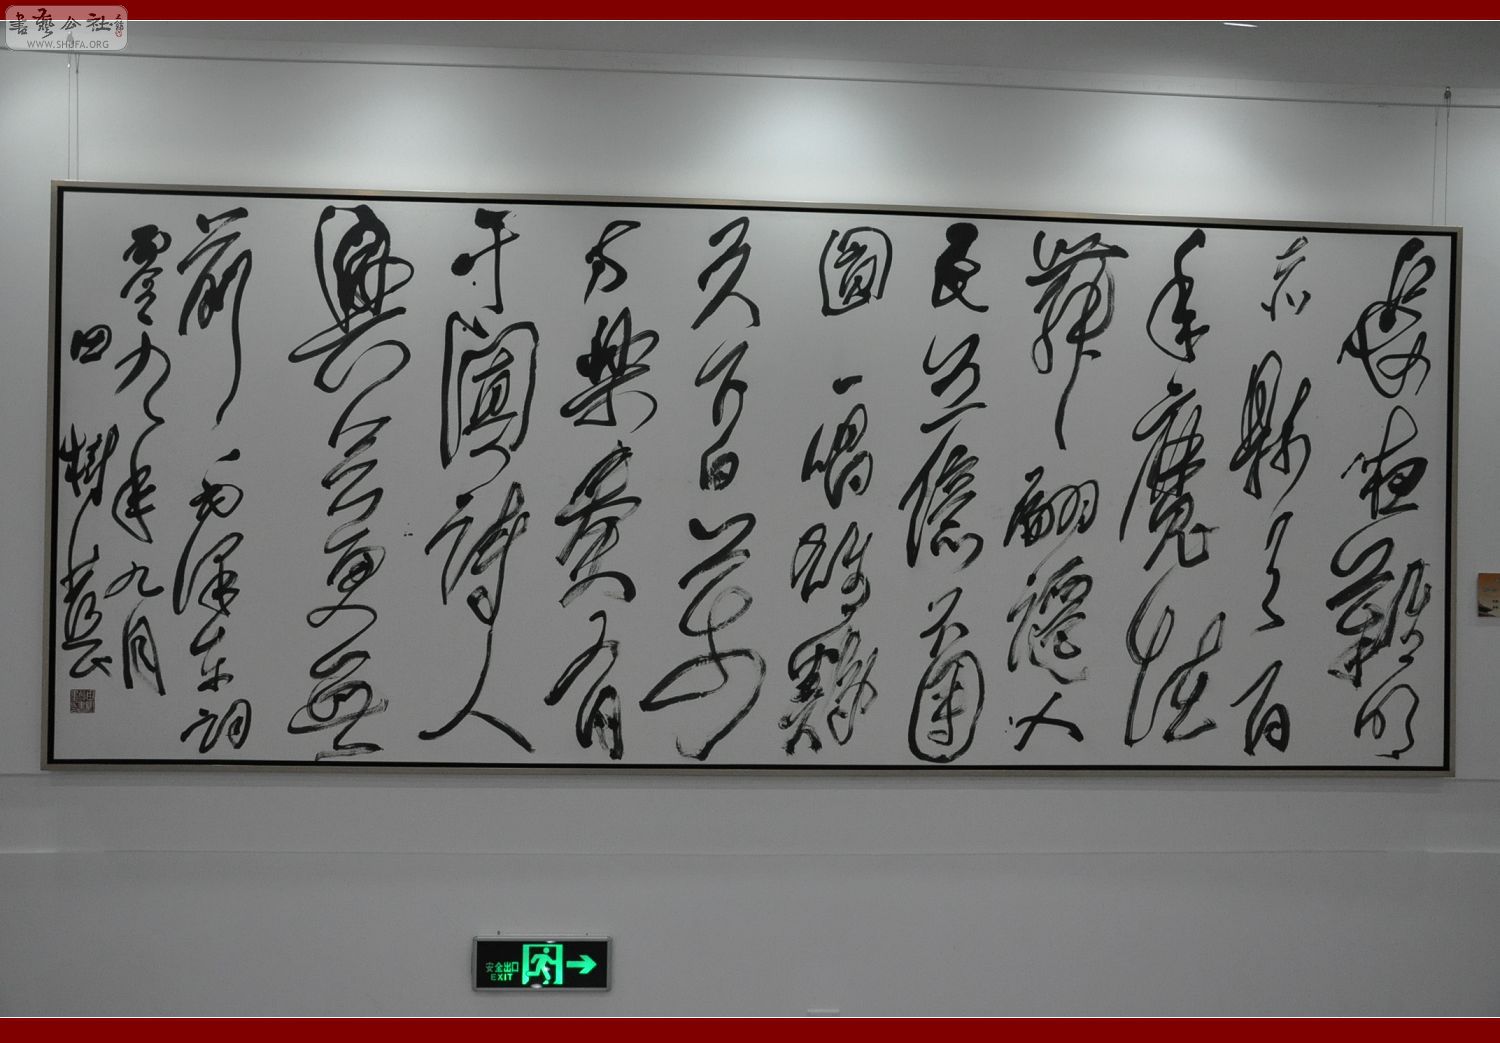 書藝公社
WWW.SHUFA.ORG
長夜難明
赤縣天百
年魔怪
舞翩躚人
民五億不團
圓一唱雄雞
天下白萬
方樂奏有
于闐詩人
興會更無
前 毛澤東詞
零九年九月
田樹萇
安全出口
EXIT